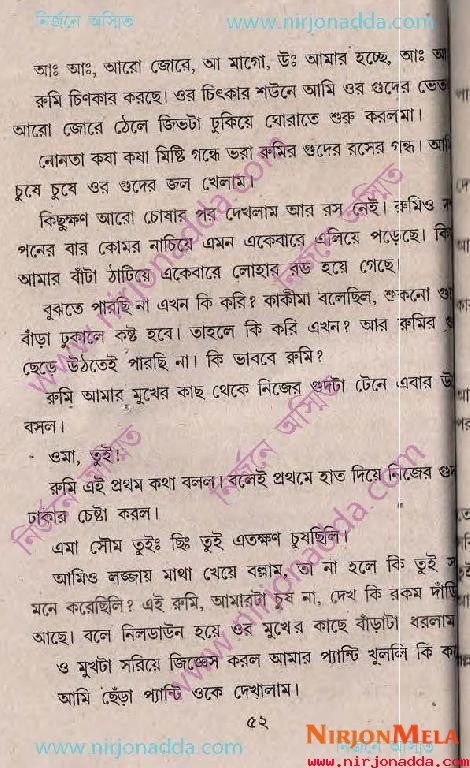 নির্জনে অস্মিত www.nirjonadda.com
আঃ আঃ, আরো জোরে, আ মাগো, উঃ আমার হচ্ছে, আঃ
রুমি চিৎকার করছে। ওর চিৎকার শউনে আমি ওর গুদের
আরো জোরে ঠেলে জিভটা ঢুকিয়ে ঘোরাতে শুরু করলমা।
নোনতা কষা কষা মিষ্টি গন্ধে ভরা রুমির গুদের রসের গন্ধ।
চুষে চুষে ওর গুদের জল খেলাম।
কিছুক্ষণ আরো চোষার পর দেখলাম আর রস নেই। রুমিও
পনের বার কোমর নাচিয়ে এমন একেবারে এলিয়ে পড়েছে।
আমার বাঁটা ঠাটিয়ে একেবারে লোহার রড হয়ে গেছে
বুঝতে পারছি না এখন কি করি? কাকীমা বলেছিল, শুকনো
বাঁড়া ঢুকালে কষ্ট হবে। তাহলে কি করি এখন? আর রুমির
ছেড়ে উঠতেই পারছি না। কি ভাববে রুমি?
রুমি আমার মুখের কাছ থেকে নিজের গুদটা টেনে এবার
বসল।
ওমা, তুই।
রুমি এই প্রথম কথা বলল। বলেই প্রথমে হাত দিয়ে নিজের
ঢাকার চেষ্টা করল।
এমা সৌম তুইঃ ছিঃ তুই এতক্ষণ চুষছিলি।
আমিও লজ্জায় মাথা খেয়ে বল্লাম, তা না হলে কিঃ তুই
মনে করেছিলি? এই রুমি, আমারটা চুষ না, দেখ কি রকম
আছে। বলে নিলডাউন হয়ে ওর মুখের কাছে বাঁড়াটা ধরলাম
ও মুখটা সরিয়ে জিজ্ঞেস করল আমার প্যান্টি খুললি কি
আমি ছেঁড়া প্যান্টি ওকে দেখালাম।
৫২
www.nirjonadda.com নির্জনে অস্মিত
NIRJONMELA
www.nirjonadda.com
www.nirjonadda.com
নির্জনে অস্মিত
নির্জনে অস্মিত
নির্জনে অস্মিত
www.nirjonadda.com
www.nirjonadda.com